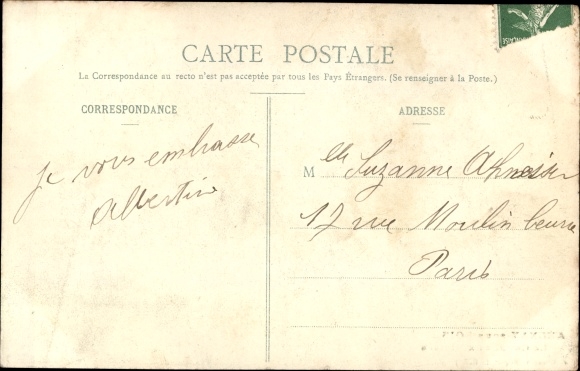 CARTE POSTALE
La Correspondance au recto n'est pas acceptée par tous les Pays Étrangers. (Se renseigner à la Poste.)
CORRESPONDANCE
Je vous embrasse
Albertine
ADRESSE
Mlle Suzanne
17 rue Moulin beurre
Paris